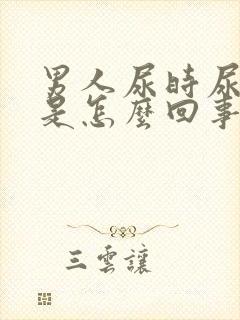 男人尿时尿
是怎麼回事
三雲讓